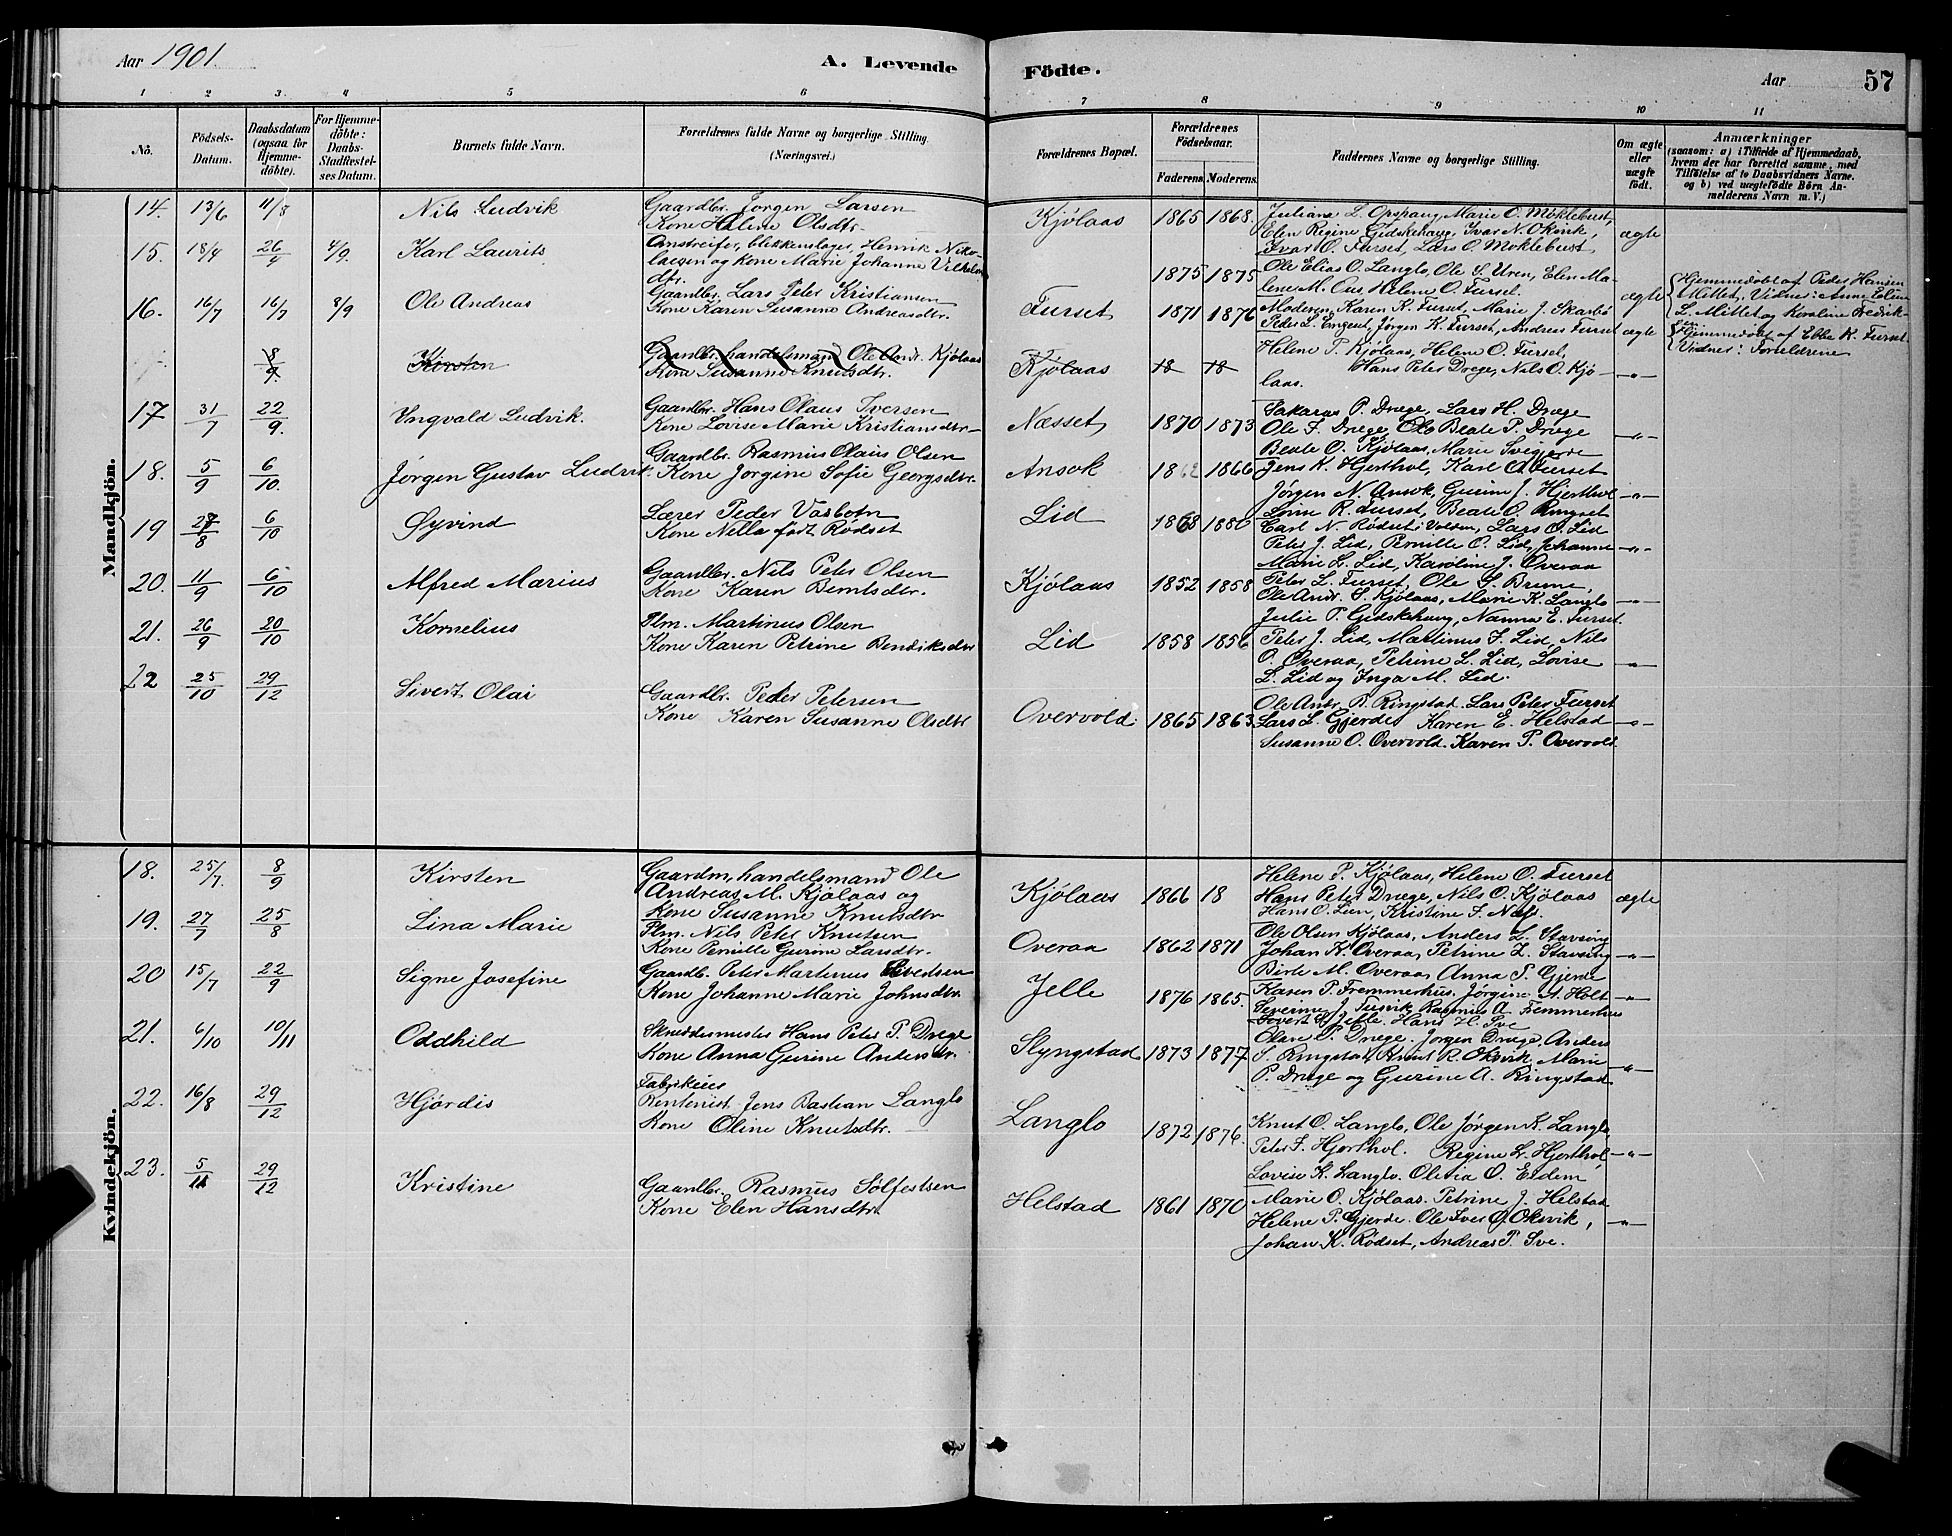 Aar 1901. A. Levende Födte. Aar 57
1 2 3. 4 5 6 7 8 9 10 11
No. Födsels-Datum. Daabsdatum (ogsaa for Hjemme-döbte). For Hjemme-döbte: Daabs-Stadfæstel-ses Datum. Barnets fulde Navn. Forældrenes fulde Navne og borgerlige Stilling. (Næringsvei.) Forældrenes Bopæl. Forældrenes Födselsaar. Faderens Moderens. Faddernes Navne og borgerlige Stilling. Om ægte eller uægte födt. Anmærkninger (saasom: a) i Tilfælde af Hjemmedaab, hvem der har forrettet samme, med Tilföielse af to Daabsvidners Navne. og b) ved uægtefödte Börn An-melderens Navn m. V.)
Mandkjön.
14. 13/6 11/8 Nils Ludvik Gaardbr. Jørgen Larsen
Kone Halene Olsdtr. Kjølaas 1865 1868. Juliane L. Opshaug, Marie O. Møklebust,
Elen Regine Gidskehaug, Ivar N. Oksvik, ægte
Ivar O. Furset, Lars O. Møklebust
15. 18/4 26/4 4/9. Karl Laurits Omstreifer, blikkenslager, Henrik Niko-
laesen og kone Marie Johanne Vilhelms-
dtr. 1875 1875 Ole Elias O. Langlo, Ole S. Uren, Elen Ma-
lene M. Aus Helene O. Furset. ægte Hjemmedøbt af Peder Hansen
Mittet, Vidner: Anne Eline
L. Mittet og Karoline Fredrik-
16. 16/7 16/7 8/9 Ole Andreas Gaardbr. Lars Peter Kristiansen
Kone Karen Susanne Andreasdtr. Furset 1871 1876 Moderen, Karen K. Furset, Marie J. Skarbø
Peder L. Engeset, Jørgen K. Furset, Andreas Furset ægte Hjemmedøbt af Ebbe K. Furset.
Vidner: Forældrene
8/9. Kirsten Gaardbr. handelsmand Ole Andr. Kjølaas
Kone Susanne Knutsdtr. Kjølaas 18 18 Helene P. Kjølaas, Helene O. Furset,
Hans Peter Drege, Nils O. Kjø-
laas. -"-
17. 31/7 22/9. Yngvald Ludvik. Gaardbr. Hans Olaus Iversen
Kone Lovise Marie Kristiansdtr. Næsset 1870 1873 Sakarias P. Drege, Lars H. Drege
Ole F. Drege, Beate P. Drege
Beate O. Kjølaas, Marie Svegjerde -"-
18. 5/9 6/10. Jørgen Gustav Ludvik. Gaardbr. Rasmus Olaus Olsen
Kone Jørgine Sofie Georgsdtr. Ansok 1862 1866 Jens K. Hjorthol, Karl A Furset
Jørgen N. Ansok, Gurine J. Hjorthol -"-
Lovise R. Furset, Beate O. Ringset
19 27/8 6/10 Øyvind Lærer Peder Vasbotn
Kone Nilla født Rødset Lid 1868 1880 Carl N. Rødset, Volden, Lars O. Lid
Peter J. Lid, Pernille O. Lid, Johanne -"-
Marie L. Lid, Karoline J. Overaa
20. 11/9 6/10 Alfred Marius Gaardbr. Nils Peter Olsen
Kone Karen Berntsdtr. Kjølaas 1852 1858 Peter L. Furset, Ole G. Brune,
Ole Andr. S. Kjølaas, Marie K. Langlo -"-
Julie P. Gidskehaug, Nanna E. Furset.
21. 26/9 20/10 Kornelius Plm. Martinus Olsen
Kone Karen Petrine Bendiksdtr Lid 1858 1856 Peter J. Lid, Martinus J. Lid, Nils
O. Overaa, Petrine L. Lid, Lovise -"-
L. Lid og Inga M. Lid.
22 25/10 29/12 Sivert Olai Gaardbr. Peder Petersen
Kone Karen Susanne Olsdtr Overvold. 1865 1863. Ole Andr. R. Ringstad. Lars Peter Furset
Lars L. Gjerde, Karen E. Helstad -"-
Susanne O. Overvold. Karen P. Overvold.
Kvindekjön.
18. 25/7. 8/9 Kirsten Gaardm, handelsmand Ole
Andreas M. Kjølaas og
Kone Susanne Knutsdtr Kjølaas 1866 18 Helene P. Kjølaas, Helene O. Furset
Hans Peter Drege, Nils O. Kjølaas ægte
Hans O. Lien, Kristine J.
19. 27/7 25/8 Lina Marie Plm. Nils Peter Knutsen
Kone Pernille Gurine Larsdtr. Overaa 1862 1871 Ole Olsen Kjølaas, Anders L. Stavseng
Johan K. Overaa, Petrine L. Stavseng -"-
Birte M. Overaa, Anna T. Gjerde
20 15/7 22/9 Signe Josefine Gaardb. Peter Martinus Sivertsen
Kone Johanne Marie Johnsdtr Jelle 1876 1865. Karen P. Fremmerhus. Jørgine A. Holt -"-
Severine J. Tusvik Rasmus A. Femmerhus
Sivert Jelle. Hans H. Sve
21. 6/10 10/11 Oddhild Skræddermester Hans Peter P. Drege
Kone Anna Gurine Andersdtr. Slyngstad 1873 1877 Olave P. Drege. Jørgen Drege, Anders
S. Ringstad, Knut R. Oksvik. Marie -"-
P. Drege og Gurine A. Ringstad
22. 16/8 29/12 Hjørdis Fabrikeier
Rentenist. Jens Bastian Langlo
Kone Oline Knutsdtr. Langlo 1872 1876. Knut O. Langlo, Ole Jørgen K. Langlo
Peter J. Hjorthol. Regine L. Hjorthol, -"-
Lovise K. Langlo. Olevia O. Eidem
23. 5/11 29/12 Kristine Gaardbr. Rasmus Sølfestsen
Kone Elen Hansdtr. Helstad 1861 1870 Marie O. Kjølaas. Petrine J. Helstad
Helene P. Gjerde. Ole Iver O. Oksvik, -"-
Johan K. Rødset, Andreas P. Sve.